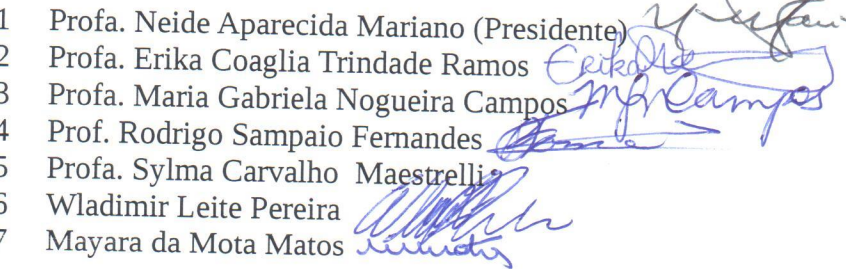 1 Profa. Neide Aparecida Mariano (Presidente)
2 Profa. Erika Coaglia Trindade Ramos Erika
3 Profa. Maria Gabriela Nogueira Campos MGNCampos
4 Prof. Rodrigo Sampaio Fernandes
5 Profa. Sylma Carvalho Maestrelli
6 Wladimir Leite Pereira
7 Mayara da Mota Matos